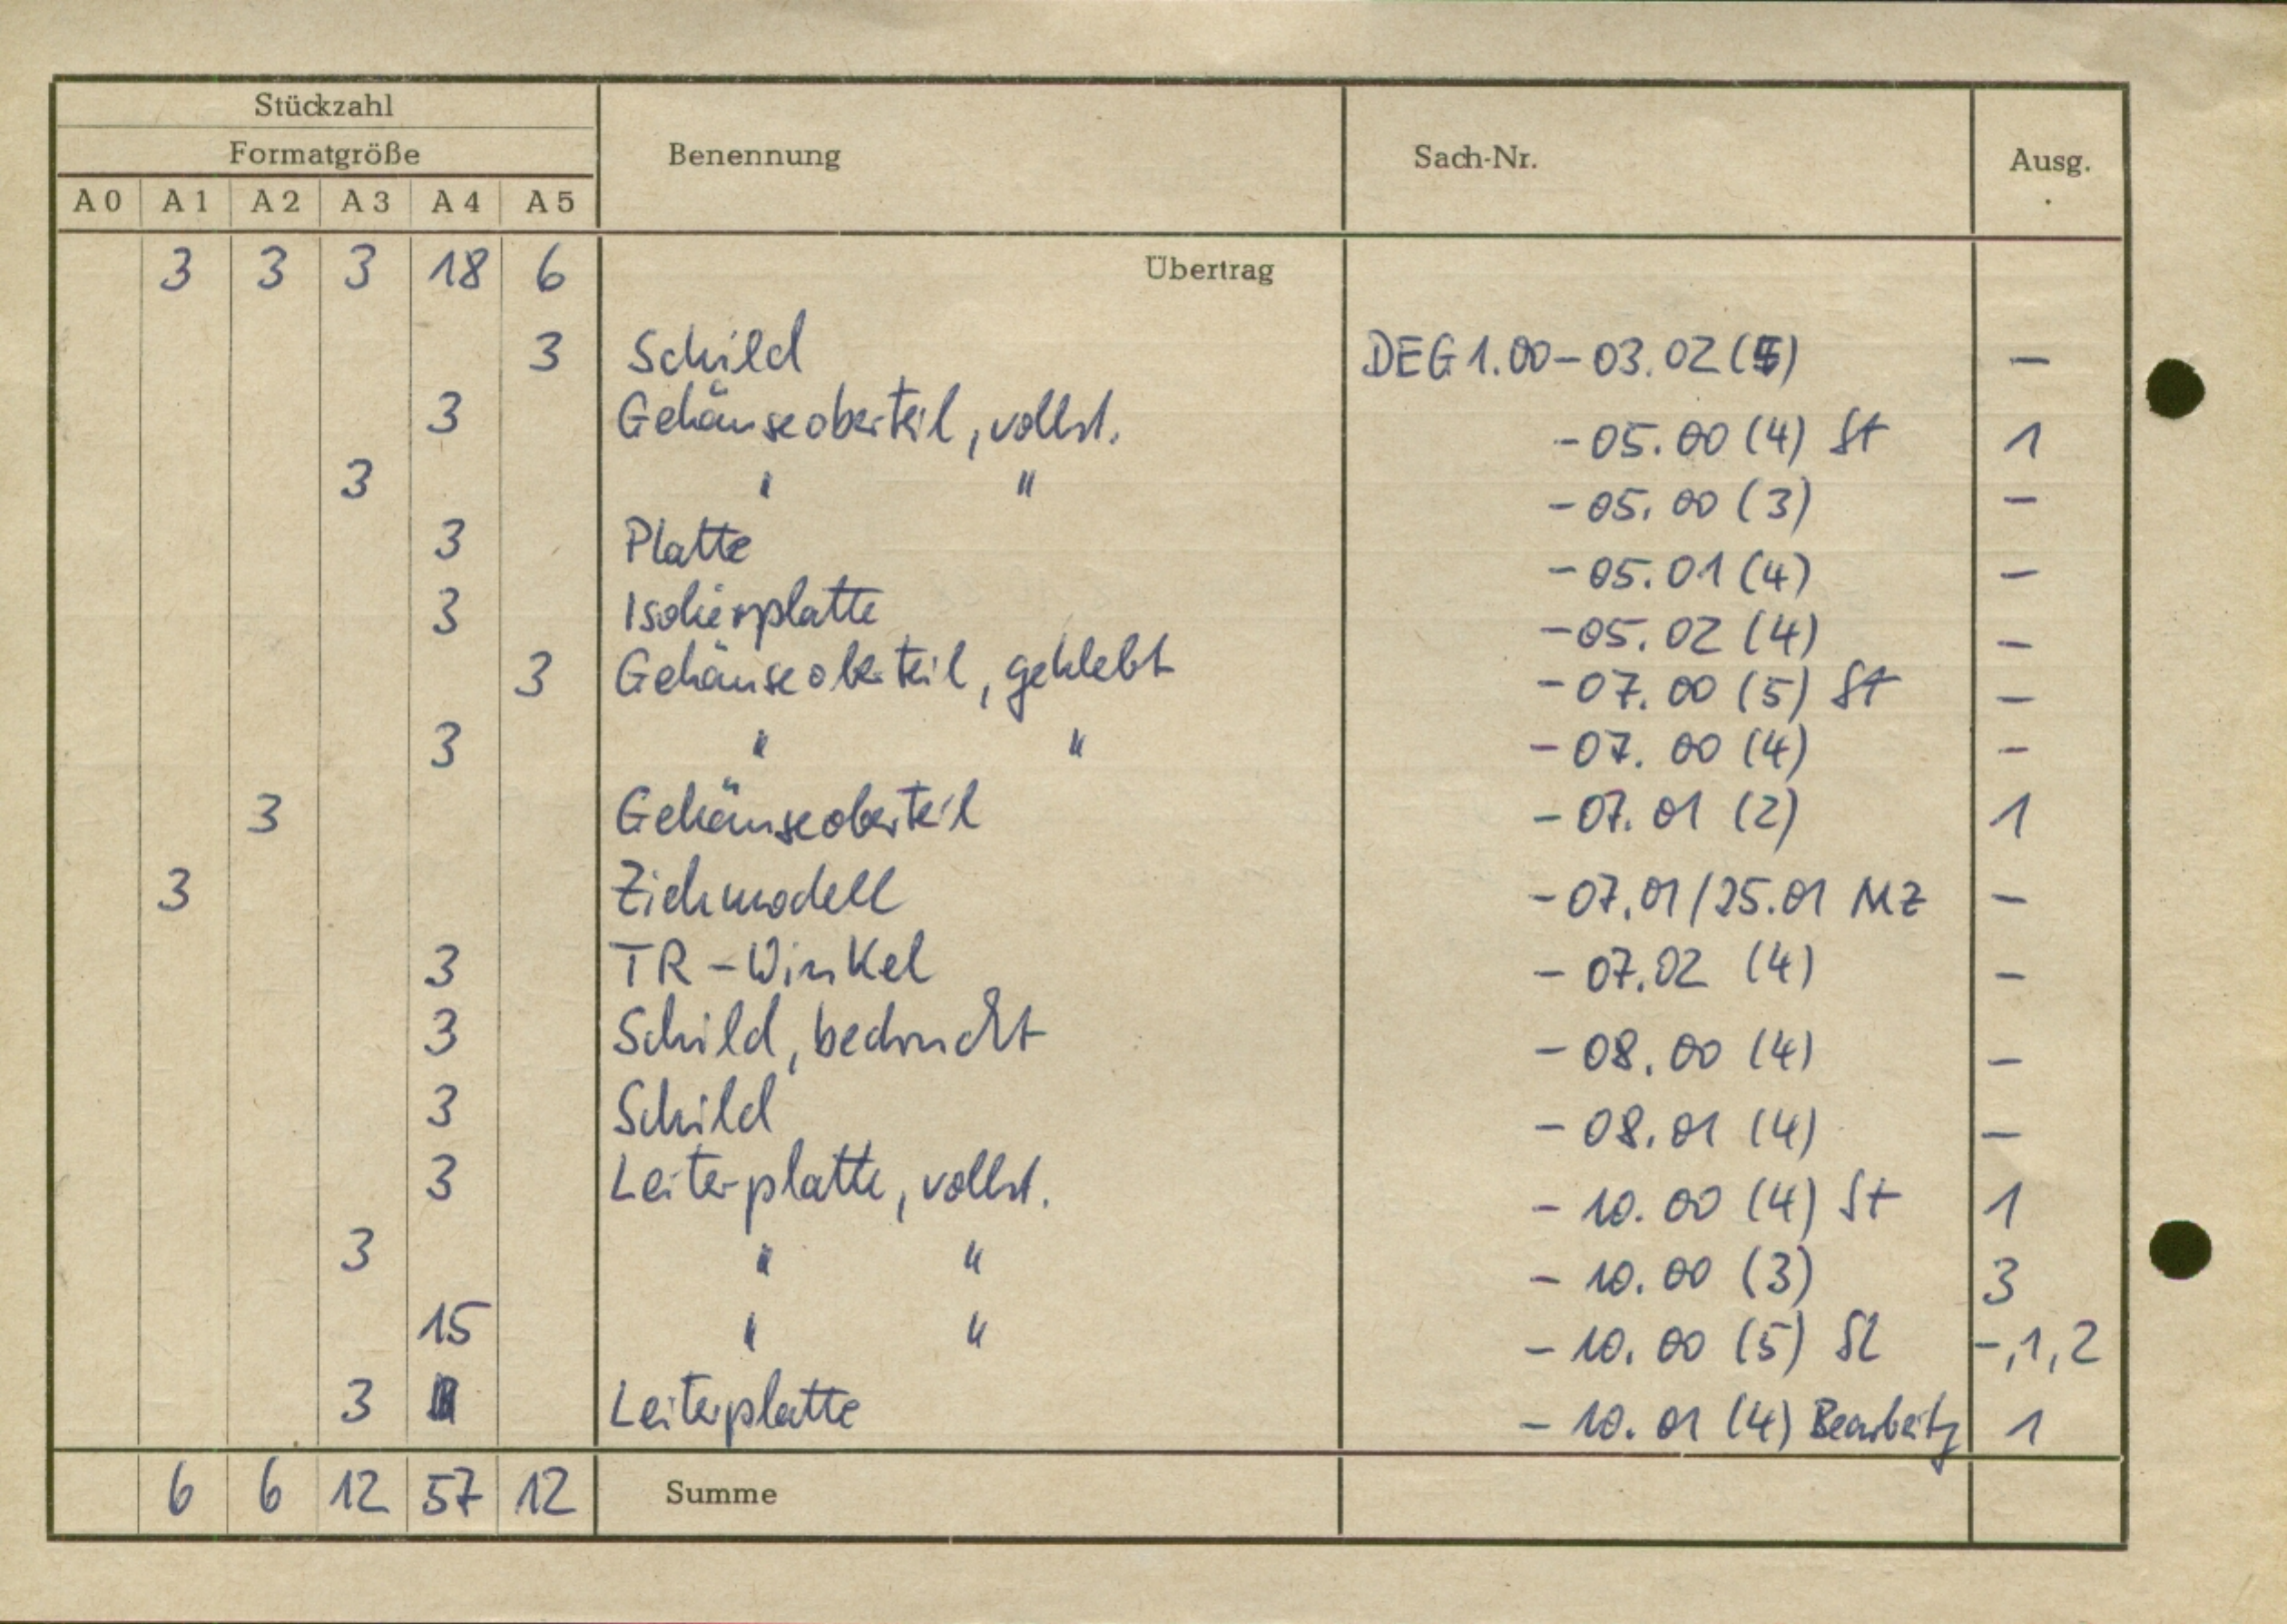 Stückzahl
Formatgröße Benennung Sach-Nr. Ausg.
A 0 A 1 A 2 A 3 A 4 A 5
3 3 3 18 6 Übertrag
3 Schild DEG 1.00-03.02 (5) -
3 Gehäuseoberteil, vollst. -05.00 (4) St 1
3 " " -05.00 (3) -
3 Platte -05.01 (4) -
3 Isolierplatte -05.02 (4) -
3 Gehäuseoberteil, geklebt -07.00 (5) St -
3 " " -07.00 (4) -
3 Gehäuseoberteil -07.01 (2) 1
3 Ziehmodell -07.01/25.01 MZ -
3 TR-Winkel -07.02 (4) -
3 Schild, bedruckt -08.00 (4) -
3 Schild -08.01 (4) -
3 Leiterplatte, vollst. -10.00 (4) St 1
3 " " -10.00 (3) 3
15 " " -10.00 (5) SL -,1,2
3 Leiterplatte -10.01 (4) Bearbeitg 1
6 6 12 57 12 Summe